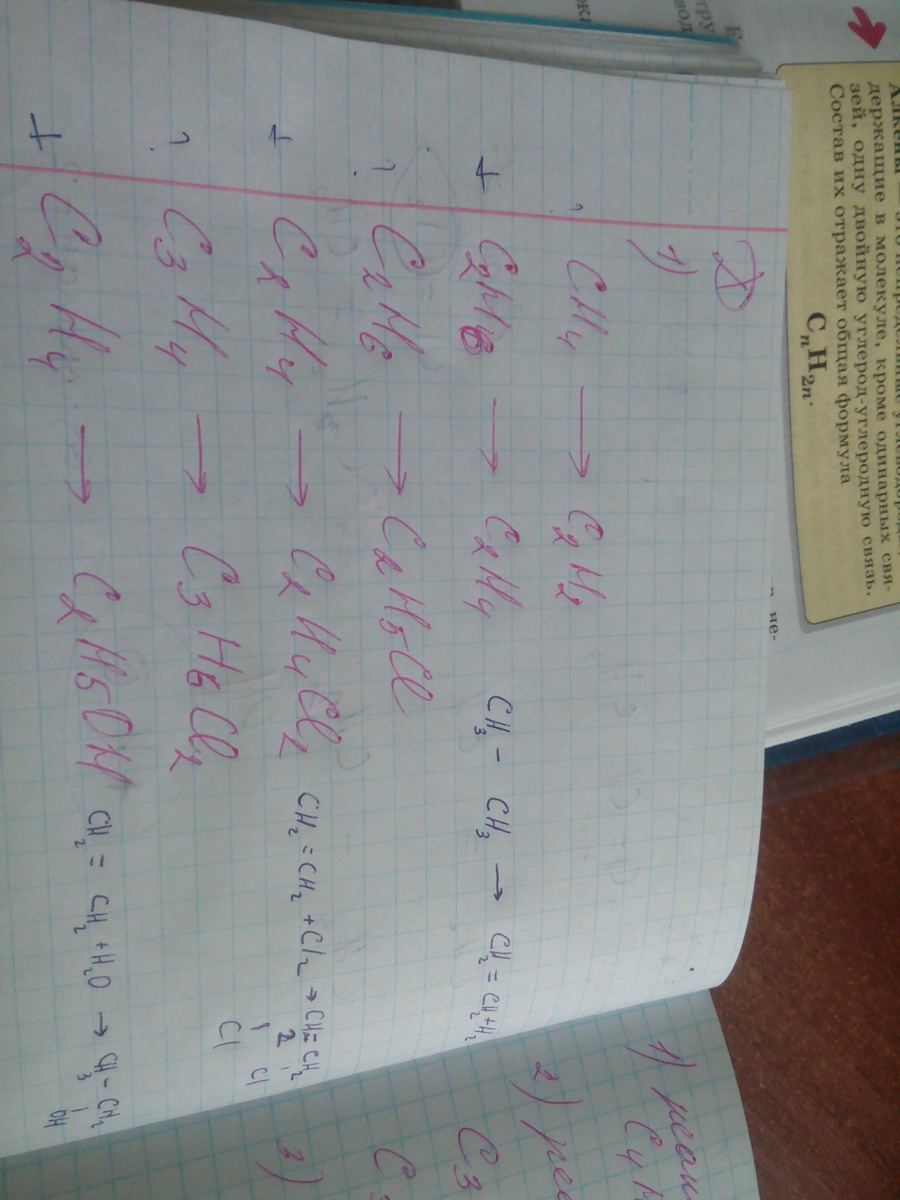 держащие в молекуле, кроме одинарных свя-
зей, одну двойную углерод-углеродную связь.
Состав их отражает общая формула
CₙH₂ₙ.
не-
1)
? CH₄ → C₂H₂
+ C₂H₆ → C₂H₄ CH₃ - CH₃ → CH₂ = CH₂+H₂
? C₂H₆ → C₂H₅Cl
+ C₂H₄ → C₂H₄Cl₂ CH₂ = CH₂ + Cl₂ → CH₂-CH₂
Cl Cl
? C₃H₄ → C₃H₆Cl₂
+ C₂H₄ → C₂H₅OH CH₂ = CH₂ + H₂O → CH₃ - CH₂
OH
1)
C₄
2)
C₃
3)